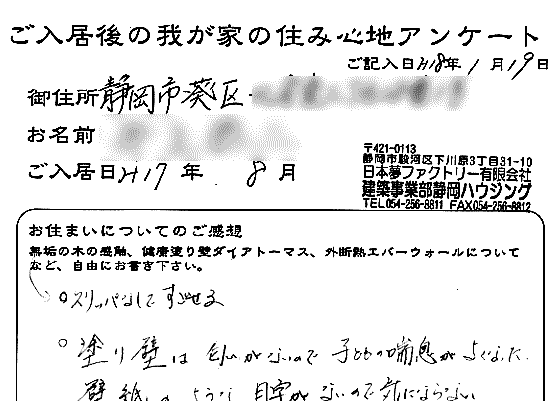 ご入居後の我が家の住み心地アンケート
ご記入日H18年1月19日
御住所静岡市葵区
お名前
ご入居日H17年8月
〒421-0113
静岡市駿河区下川原3丁目31-10
日本夢ファクトリー有限会社
建築事業部静岡ハウジング
TEL054-256-8811 FAX054-256-8812
お住まいについてのご感想
無垢の木の感触、健康塗り壁ダイアトーマス、外断熱エバーウォールについて
など、自由にお書き下さい。
○スリッパなしですごせる
○塗り壁は匂いがないので子どもの喘息がよくなった
壁紙のような目字がないので気にならない